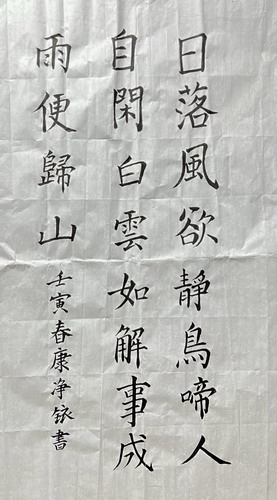 日落風欲靜鳥啼人
自閑白雲如解事成
雨便歸山壬寅春康净铱書